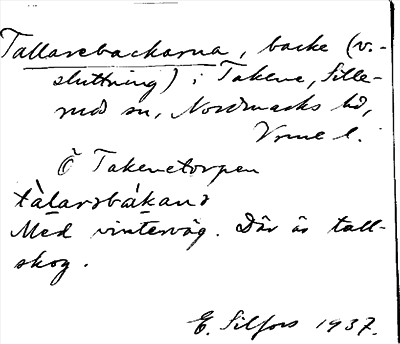 Tallarebackarna, backe (v.
sluttning) i Takene, Sille-
rud sn, Nordmarks hd,
Vrml l.
Ö Takenetorpen
tàlarsbákana
Med vinterväg. Där är tall-
skog.
E. Silfors 1937.